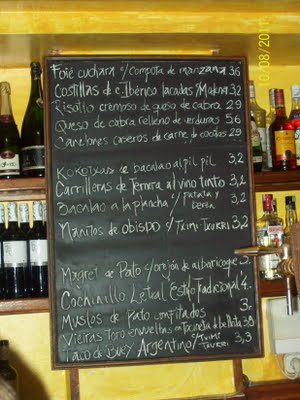 Foie cuchara c/compota de manzana 3,6
Costillas de c. Ibérico lacadas/Malena 3,2
Risotto cremoso de queso de cabra 2.9
Queso de cabra relleno de verduras 5.6
Canelones caseros de carne, de 2.9
Kokotxas de bacalao al pil pil 3,2
Carrilleras de Ternera al vino tinto 3,2
Bacalao a la plancha c/ patata y berza 3,2
Manitos de obispo c/ Tximi Txurri 3,2
Magret de Pato c/orejón de albaricoque 3.
Cochinillo Letxal Estilo Tradicional 4.
Muslos de Pato confitados 3,
Vieiras Toro envueltas en tocineta de bellota 3,8
Taco de Buey Argentino/ Tximi Txurri 3,3
10/08/2011